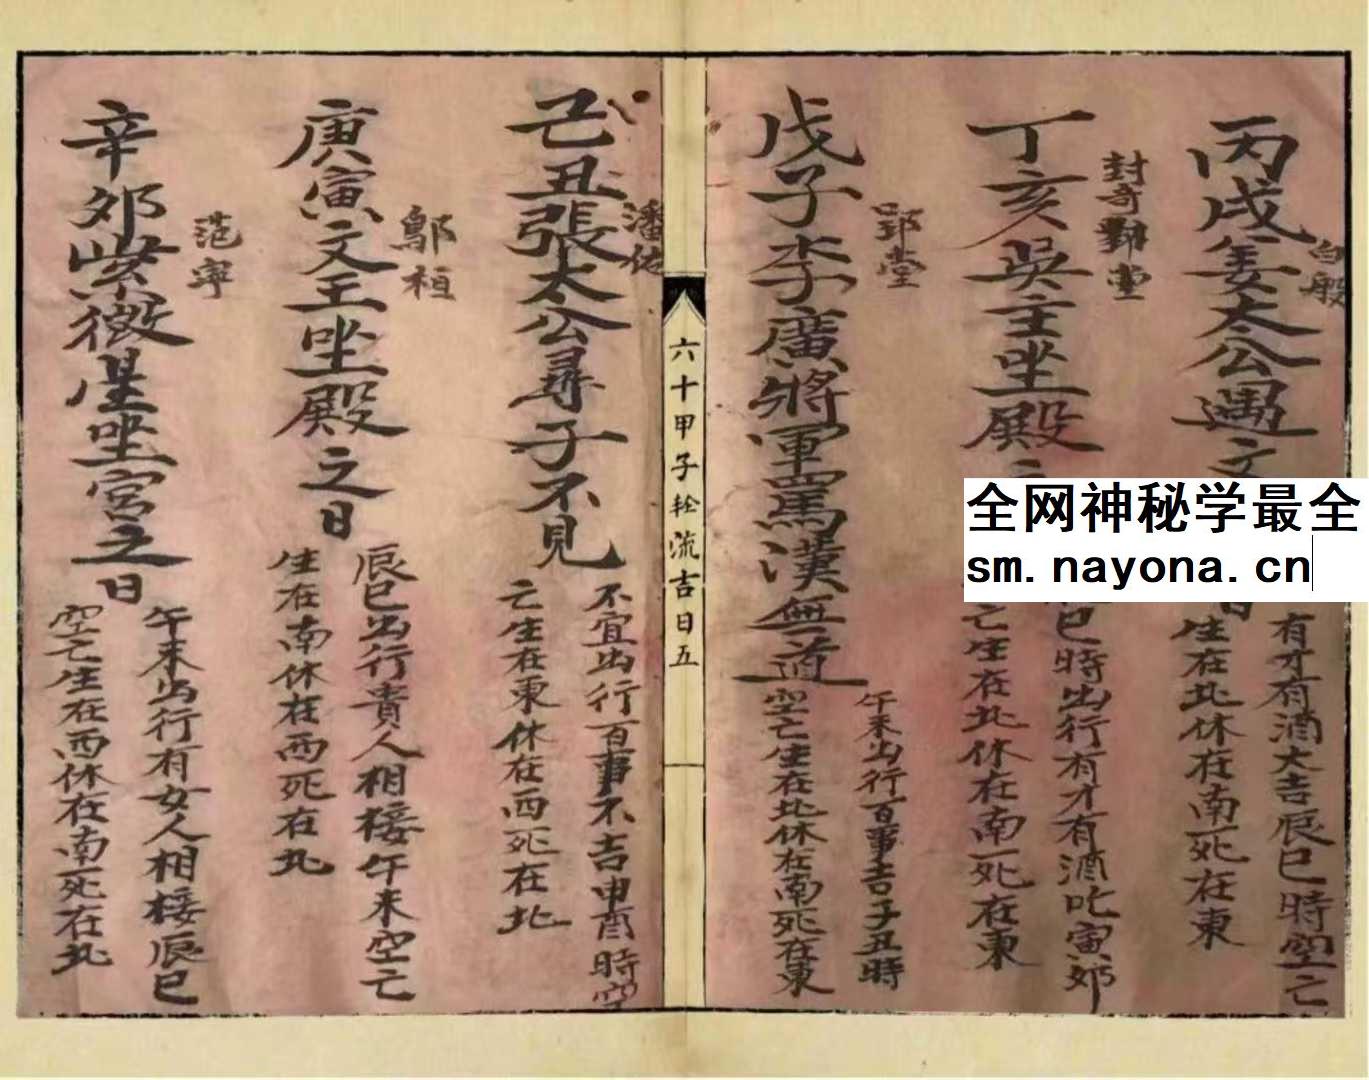 丙戌姜太公遇文
日
白般
有才有酒大吉辰巳時空亡
生在北休在南死在東
丁亥吳主坐殿之
封奇
堂
巳時出行有才有酒吃寅夘
亡生在北休在南死在東
戊子李廣將軍罵漢無道
郢堂
午未出行百事吉子丑時
空亡生在北休在南死在東
六十甲子轮流吉日五
己丑張太公尋子不見
潘佑
不宜出行百事不吉申酉時空
亡生在東休在西死在北
庚寅文王坐殿之日
鄔桓
辰巳出行貴人相接午未空亡
生在南休在西死在北
辛夘紫微星坐宮之日
范寧
午未出行有女人相接辰巳
空亡生在西休在南死在北
全网神秘学最全
sm.nayona.cn